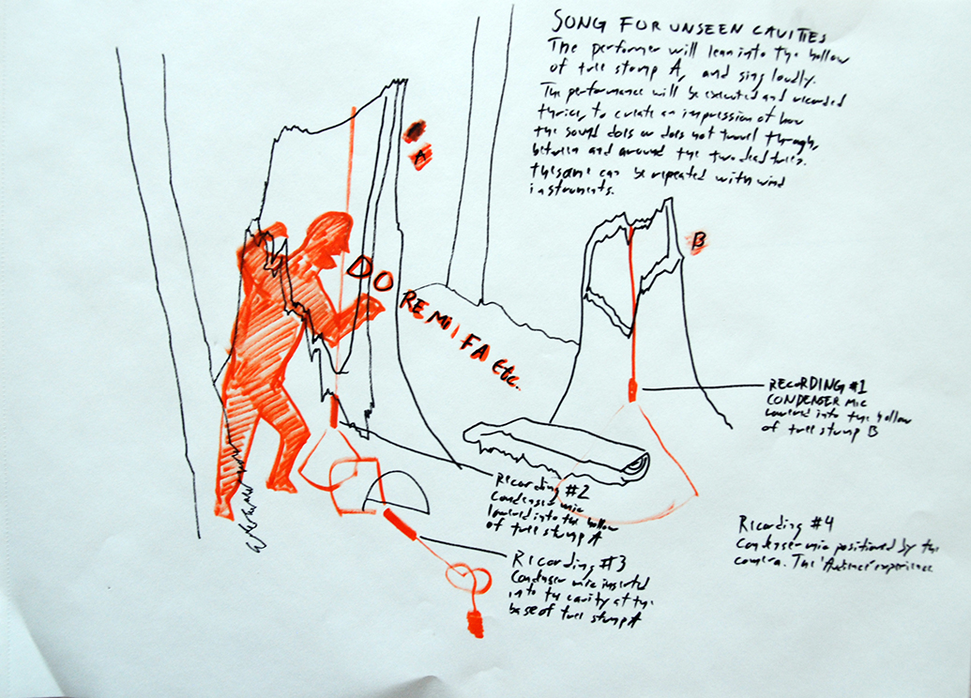 SONG FOR UNSEEN CAVITIES
The performer will lean into the hollow
of tree stump A, and sing loudly.
The performance will be executed and recorded
thrice, to create an impression of how
the sound does or does not travel through,
between and around the two dead trees.
The same can be repeated with wind
instruments.
A
B
DO RE MI FA etc.
RECORDING #1
CONDENSER MIC
lowered into the hollow
of tree stump B
Recording #2
Condenser mic
lowered into the hollow
of tree stump A
Recording #3
Condenser mic inserted
into the cavity at the
base of tree stump A
Recording #4
Condenser mic positioned by the
camera. The 'Audience' experience